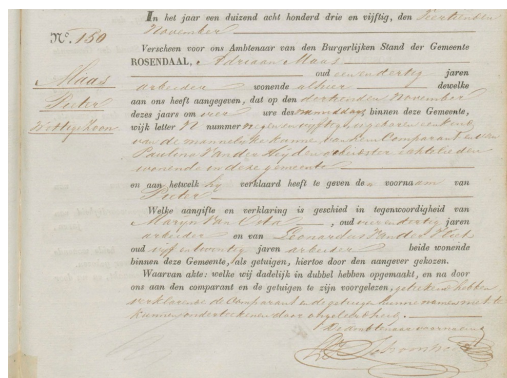 In het jaar een duizend acht honderd drie en vijftig, den veertienden
November
N°. 150
Verscheen voor ons Ambtenaar van den Burgerlijken Stand der Gemeente
ROSENDAAL, Adriaan Maas
Maas
oud een en dertig jaren
arbeider wonende alhier dewelke
Pieter
aan ons heeft aangegeven, dat op den dertienden November
Wettige Zoon
dezes jaars om vier ure des namiddags binnen deze Gemeente,
wijk letter N nummer negen en vijftig, is geboren een kind
van de mannelijke kunne, van hem Comparant en van
Paulina Van der Heijden echtelieden
wonende in deze gemeente
en aan hetwelk hij verklaard heeft te geven de voornaam van
Pieter
Welke aangifte en verklaring is geschied in tegenwoordigheid van
Marijn Van, oud vier en dertig jaren
arbeider en van Leonardus Van der
oud vijf en twintig jaren arbeider beide wonende
binnen deze Gemeente, als getuigen, hiertoe door den aangever gekozen.
Waarvan akte: welke wij dadelijk in dubbel hebben opgemaakt, en na door
ons aan den comparant en de getuigen te zijn voorgelezen, geteekend hebben
verklarende de Comparant en de getuigen hunne namen niet te
kunnen onderteekenen door
De Ambtenaar voornoemd